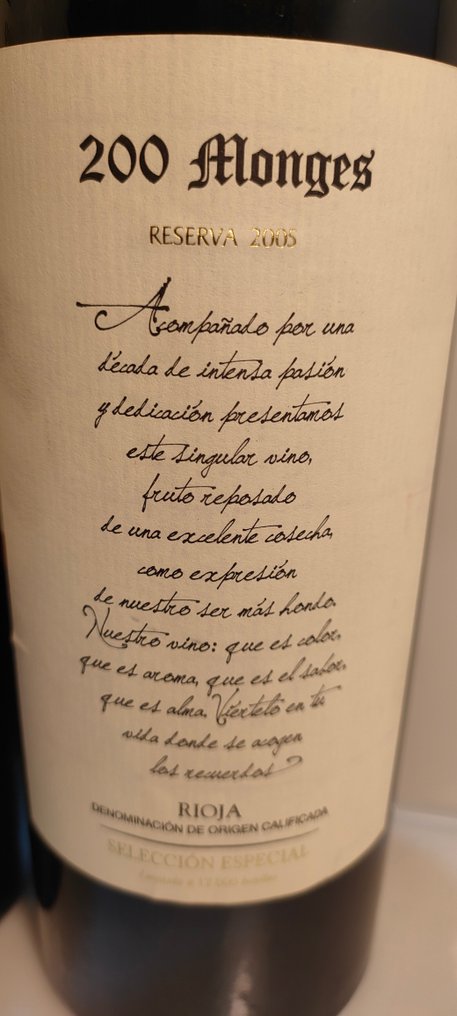 200 Monges
RESERVA 2005
Acompañado por una
década de intensa pasión
y dedicación presentamos
este singular vino,
fruto reposado
de una excelente cosecha,
como expresión
de nuestro ser más hondo.
Nuestro vino: que es color,
que es aroma, que es el sabor,
que es alma. Viértelo en tu
vida donde se acogen
los recuerdos
RIOJA
DENOMINACIÓN DE ORIGEN CALIFICADA
SELECCIÓN ESPECIAL